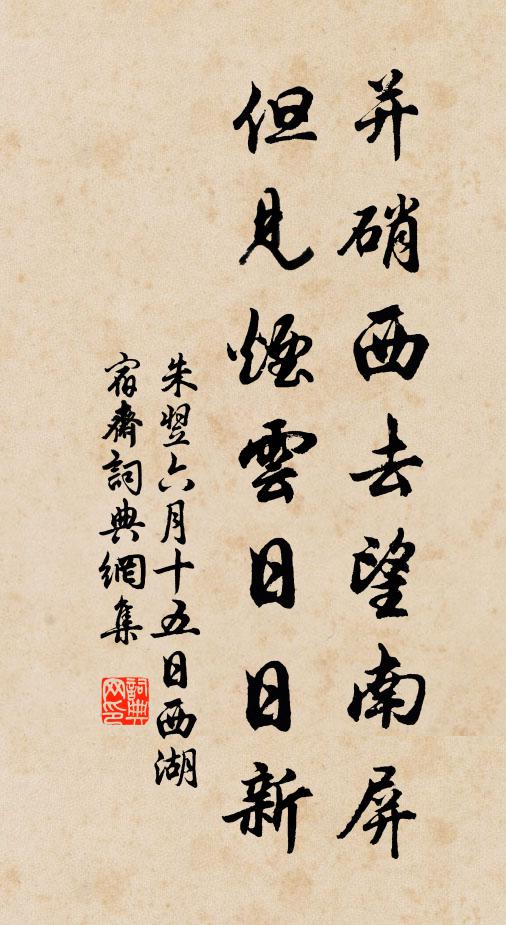 并硝西去望南屏
但見煙雲日日新
朱翌六月十五日西湖
宿齋詞典網集
詞典网印